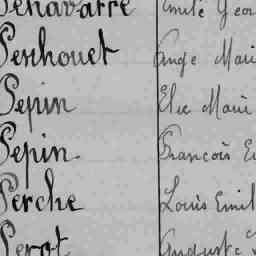 Penavaire Emile Geor
Penhouet Ange Mari
Pepin Elie Marie
Pepin. Francois E
Perche Louis Emil
Perot Auguste